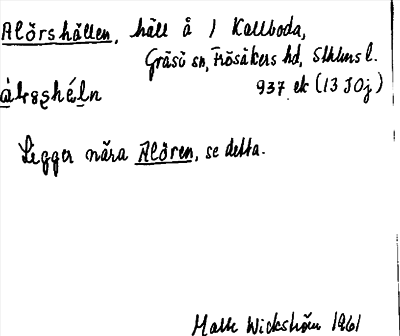 Alörshällen, häll å 1 Kallboda,
Gräsö sn, Frösåkers hd, Sthlms l.
937 ek (13 I 0j)
àlrsshéln
Ligger nära Alören, se detta.
Mats Wickström 1961